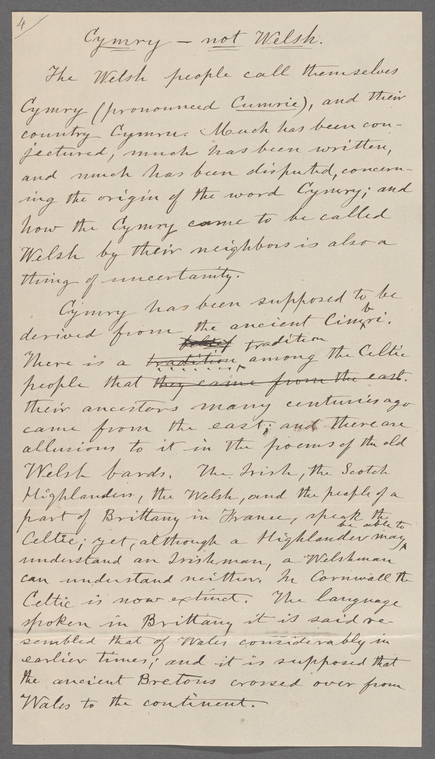 4
Cymry – not Welsh.
The Welsh people call themselves
Cymry (pronounced Cumrie), and their
country Cymru. Much has been con-
jectured, much has been written,
and much has been disputed, concern-
ing the origin of the word Cymry; and
how the Cymry came to be called
Welsh by their neighbors is also a
thing of uncertainty.
Cymry has been supposed to be
derived from the ancient Cimbri.
belief tradition
There is a tradition among the Celtic
people that they came from the east.
their ancestors many centuries ago
came from the east; and there are
allusions to it in the poems of the old
Welsh bards. The Irish, the Scotch
Highlanders, the Welsh, and the people of a
part of Brittany in France, speak the
be able to
Celtic; yet, although a Highlander may
understand an Irishman, a Welshman
can understand neither. In Cornwall the
Celtic is now extinct. The language
spoken in Brittany it is said re-
sembled that of Wales considerably in
earlier times; and it is supposed that
the ancient Bretons crossed over from
Wales to the continent.